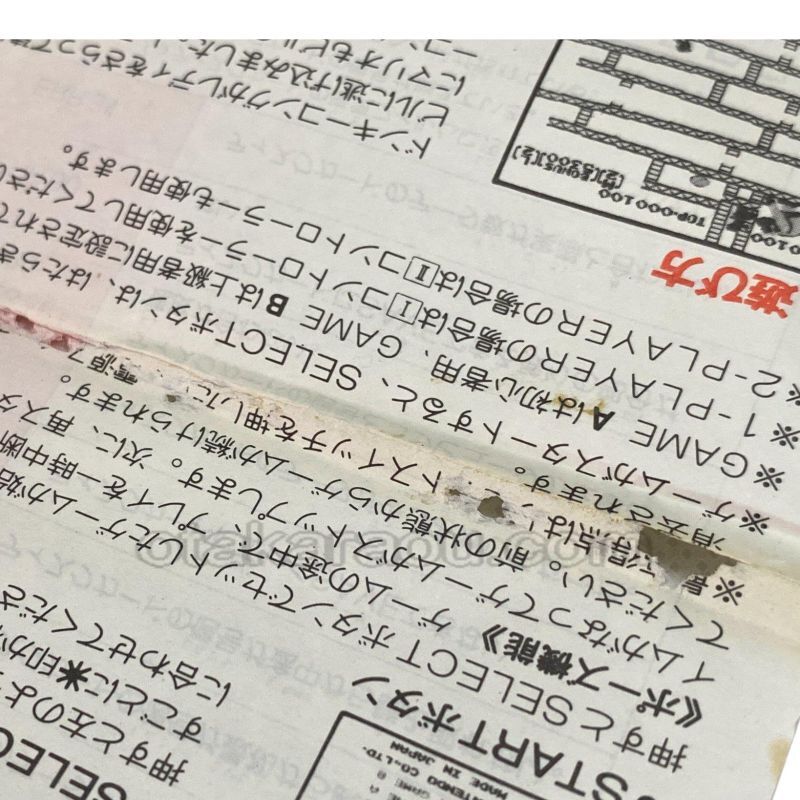 SELEC
押すと左のよ
すごとに✱印が
に合わせてくださ
GAME B
NINTENDO CO.,LTD.
MADE IN JAPAN
STARTボタン
押すとSELECTボタンでセットしたゲームが始
《ポーズ機能》
ゲームの途中で、プレイを一時中断
イムがなってゲームがストップします。次に、再スタ
てください。前の状態からゲームが続けられます。
※最 得点は トスイッチを押した 電源ス
消去されます。
※ゲームがスタートすると、SELECTボタンは、はたらき
※GAME Aは初心者用、GAME Bは上級者用に設定されて
※1-PLAYERの場合はⅠコントローラーを使用してください
※2-PLAYERの場合はⅡコントローラーも使用します。
遊び方
TOP-000100
ドンキーコングがレディをさらってき
ビルに逃げ込みました。
にマリオもビル
コン
otakaraou.com